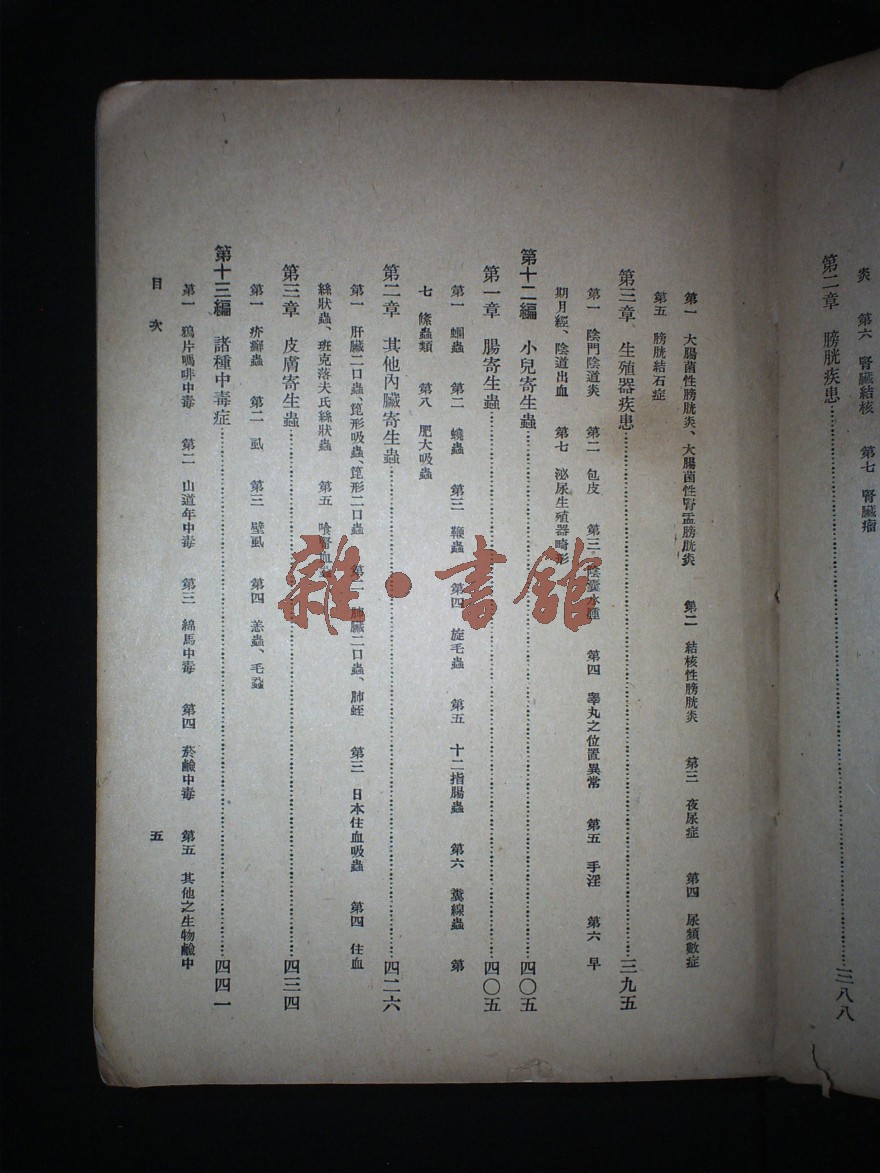 炎　第六　腎臟結核　第七　腎臟瘤
第二章　膀胱疾患…………三八八
第一　大腸菌性膀胱炎、大腸菌性腎盂膀胱炎　第二　結核性膀胱炎　第三　夜尿症　第四　尿頻數症
第五　膀胱結石症
第三章　生殖器疾患…………三九五
第一　陰門陰道炎　第二　包皮　第三　陰囊水腫　第四　睾丸之位置異常　第五　手淫　第六　早
期月經、陰道出血　第七　泌尿生殖器畸形
第十二編　小兒寄生蟲…………四〇五
第一章　腸寄生蟲…………四〇五
第一　蛔蟲　第二　蟯蟲　第三　鞭蟲　第四　旋毛蟲　第五　十二指腸蟲　第六　糞線蟲　第
七　絛蟲類　第八　肥大吸蟲
第二章　其他內臟寄生蟲…………四二六
第一　肝臟二口蟲、箆形吸蟲、箆形二口蟲　第二　肺臟二口蟲、肺蛭　第三　日本住血吸蟲　第四　住血
絲狀蟲、班克落夫氏絲狀蟲　第五　喰腎血蟲
第三章　皮膚寄生蟲…………四三四
第一　疥癬蟲　第二　虱　第三　壁虱　第四　恙蟲、毛蝨
第十三編　諸種中毒症…………四四一
第一　鴉片嗎啡中毒　第二　山道年中毒　第三　綿馬中毒　第四　菸鹼中毒　第五　其他之生物鹼中
目次　五
雜·書館